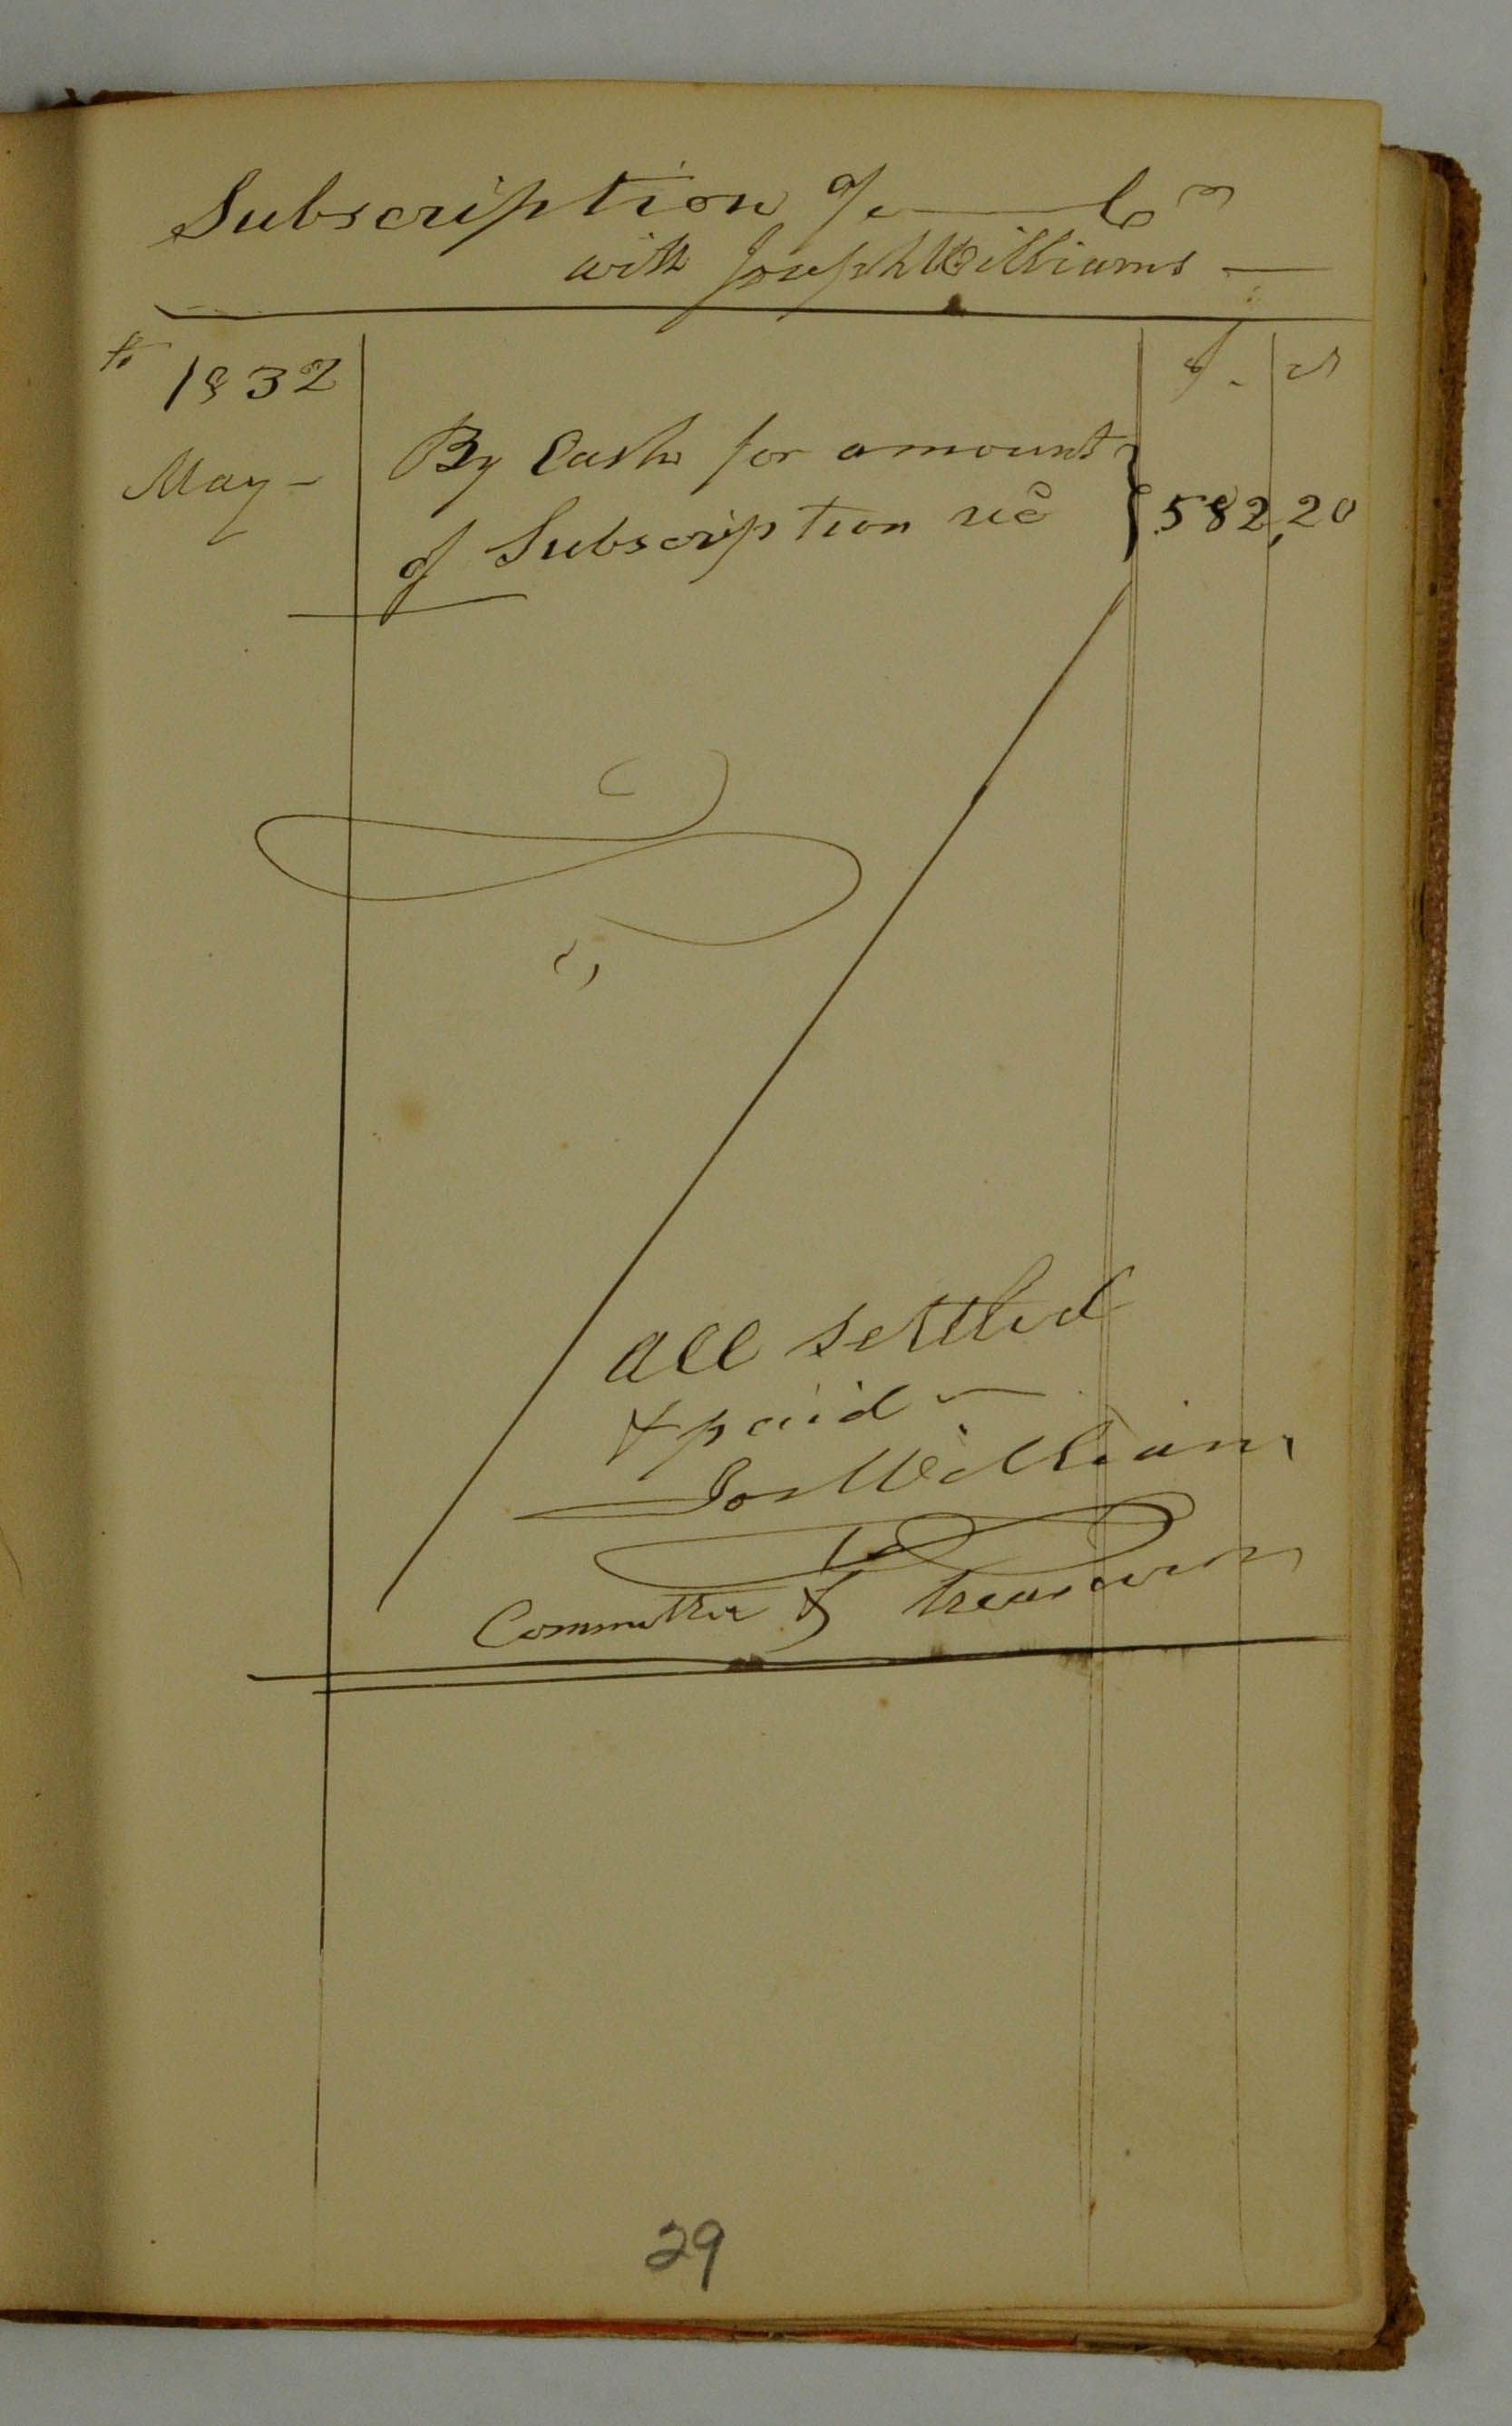 Subscription a/c — Co
with Joseph Williams —
1832
$ . cts
May — By Cash for amount
of Subscription recd } 582,20
all settled
& paid —
Jos Williams
Committee & treasurer
29